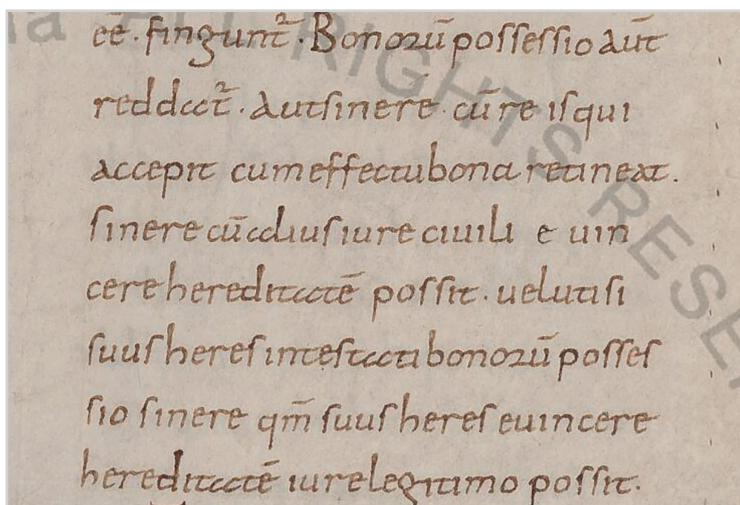 ēē. fingunt᷑. Bonorū possessio aūt
reddat᷑. aut sine re. cū re is qui
accepit cum effectu bona retineat.
sine re cū alius iure ciuili e uin
cere hereditatē possit. uelut si
suus heres intestati bonorū posses
sio sine re qm̄ suus heres euincere
hereditatē iure legitimo possit.
ALL RIGHTS RESE